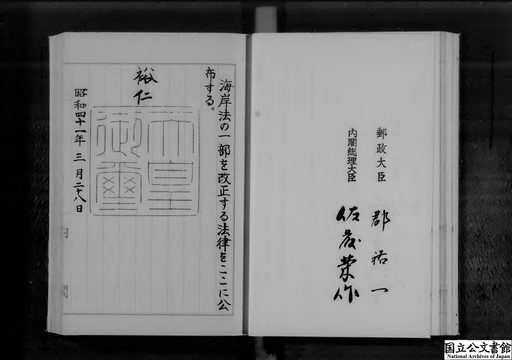 郵政大臣 郡祐一
内閣総理大臣 佐藤榮作
海岸法の一部を改正する法律をここに公
布する。
裕仁
天皇御璽
昭和四十一年三月二十八日
国立公文書館
National Archives of Japan